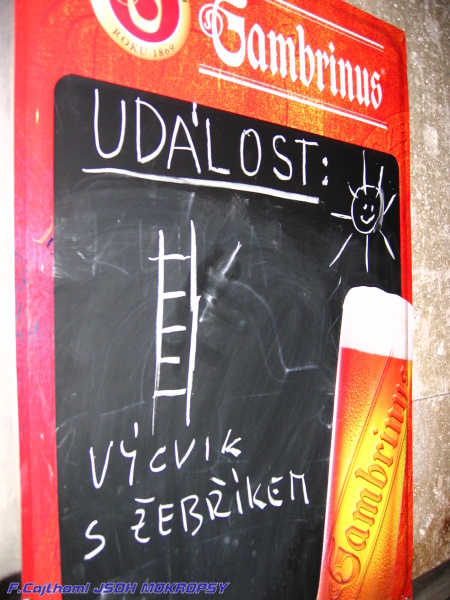 ROKU 1869
Gambrinus
UDÁLOST:
VÝCVIK
S ŽEBŘÍKEM
Gambrinus
F.Cajthaml JSDH MOKROPSY